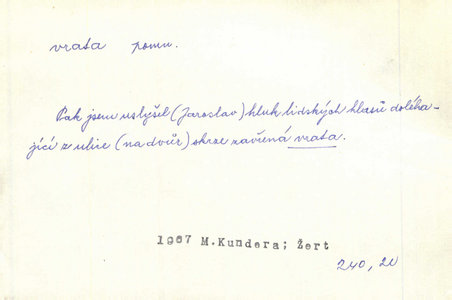 vrata pomn.
Pak jsem uslyšel (Jaroslav) hluk lidských hlasů doléha-
jící z ulice (na dvůr) skrze zavřená vrata.
1967 M.Kundera; Žert
240, 20